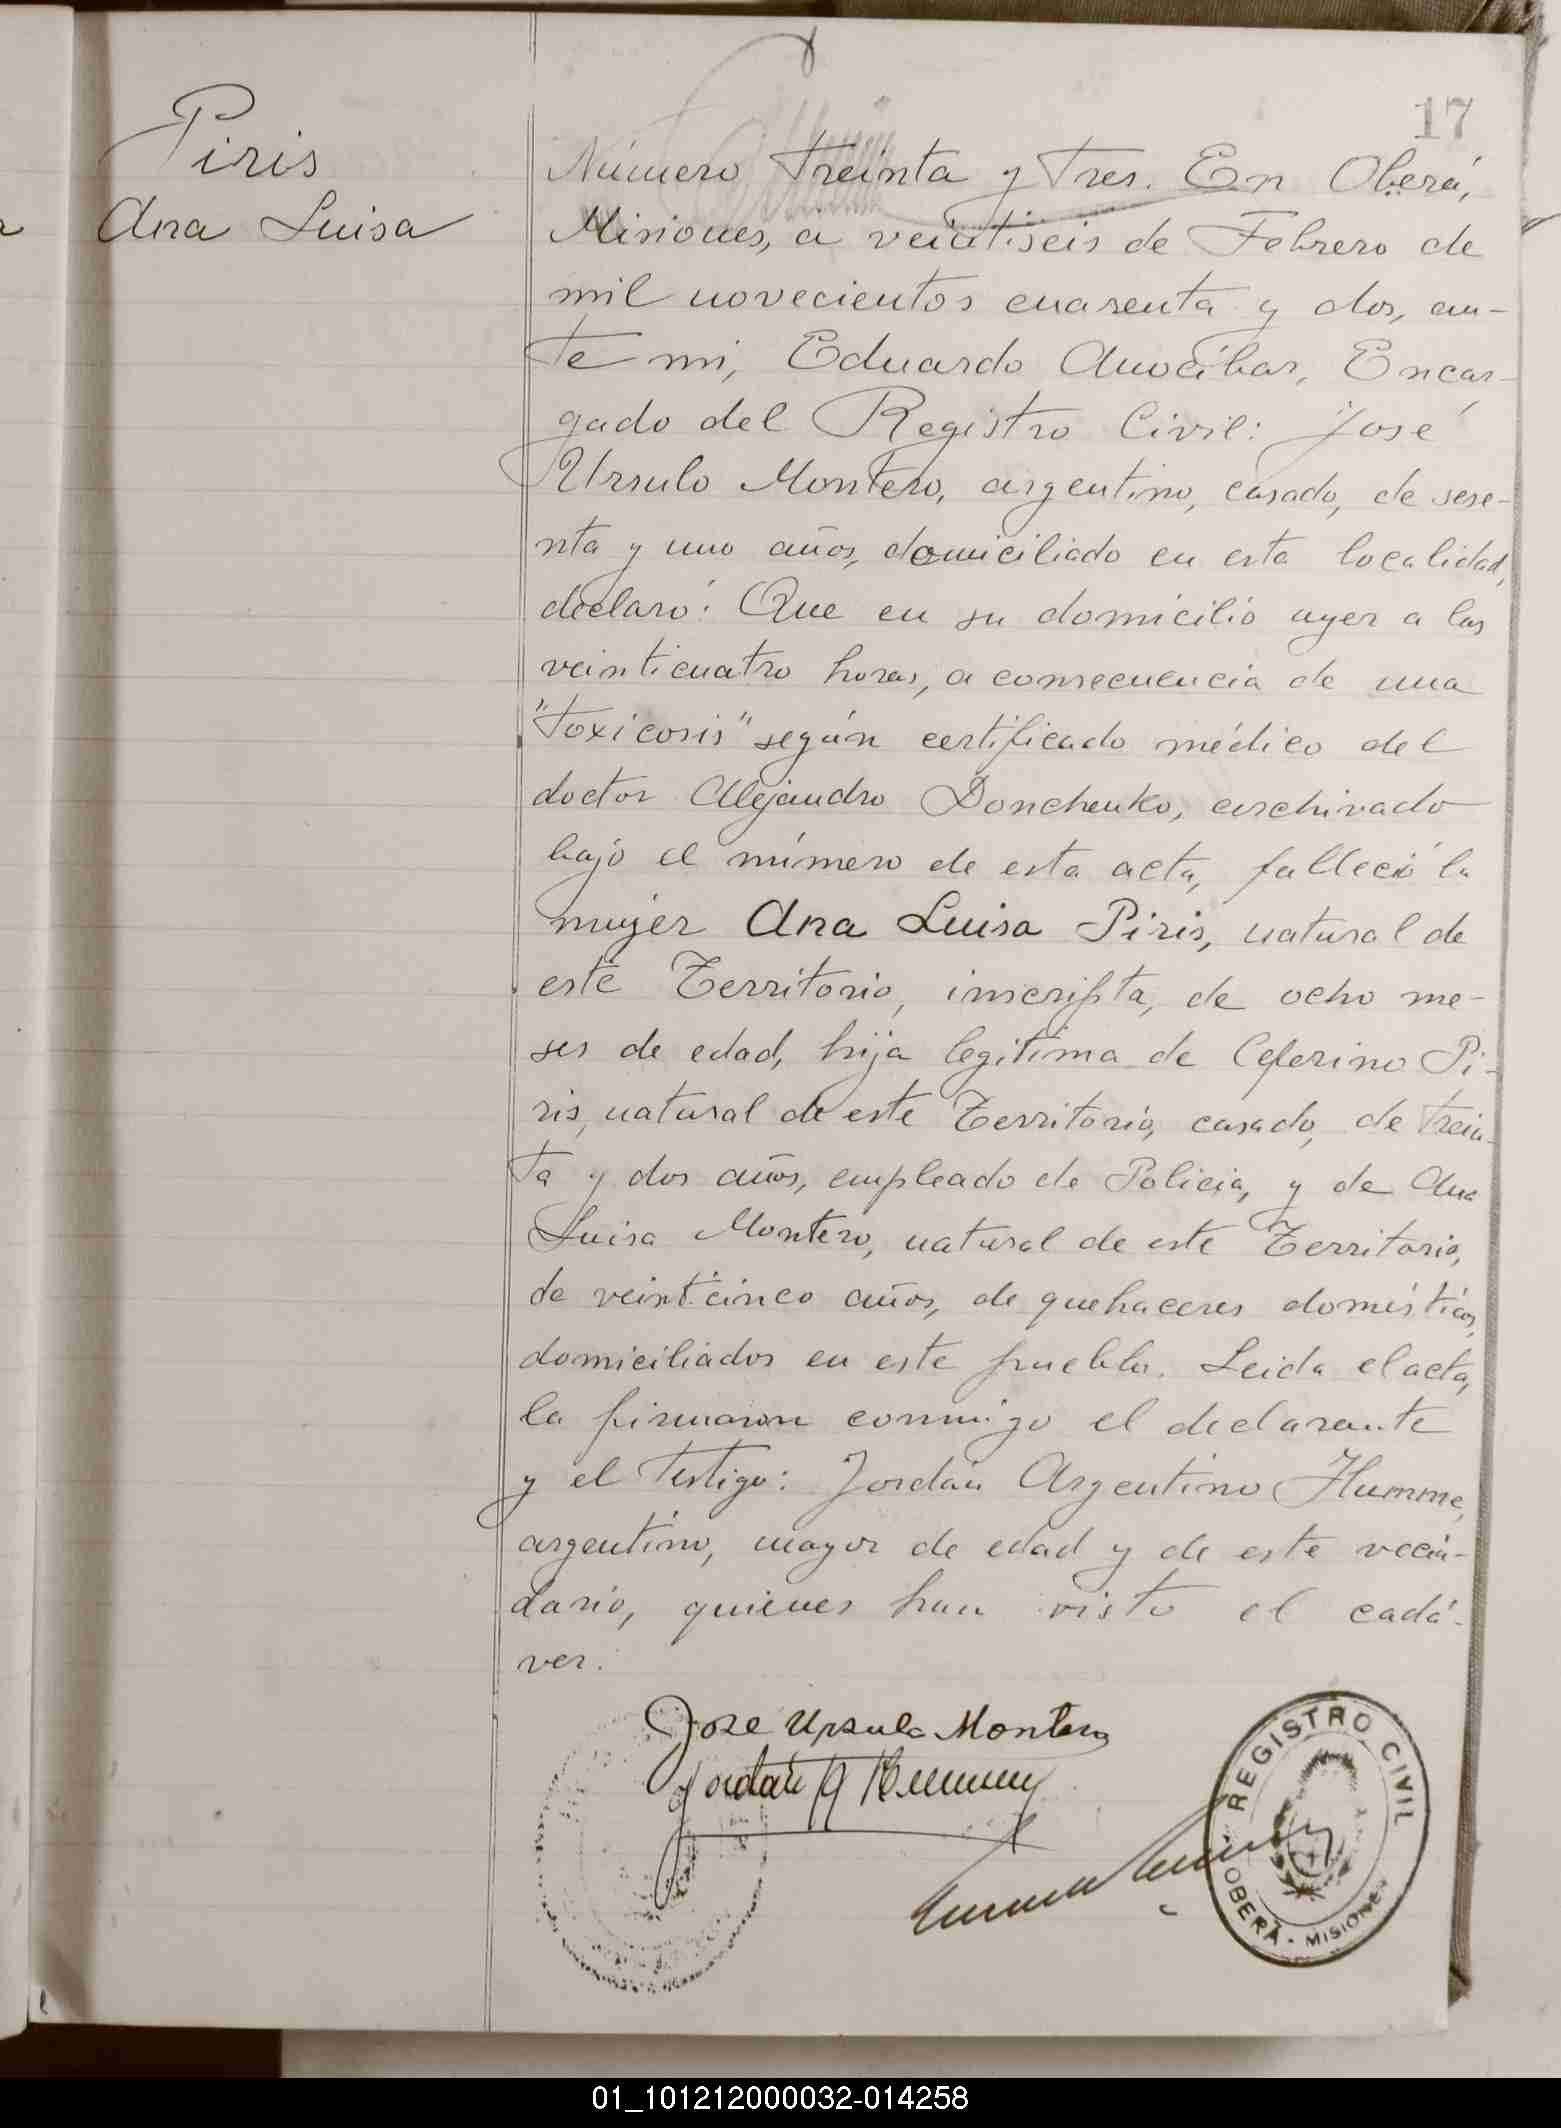 17
Piris
Ana Luisa
Número treinta y tres. En Oberá,
Misiones, a veintiseis de Febrero de
mil novecientos cuarenta y dos, an-
te mi, Eduardo Anocíbar, Encar-
gado del Registro Civil: José
Ursulo Montero, argentino, casado, de sese-
nta y uno años, domiciliado en esta localidad,
declaró: Que en su domicilio ayer a las
veinticuatro horas, a consecuencia de una
"toxicosis" según certificado médico del
doctor Alejandro Donchenko, archivado
bajo el número de esta acta, falleció la
mujer Ana Luisa Piris, natural de
este Territorio, inscripta, de ocho me-
ses de edad, hija legitima de Ceferino Pi-
ris, natural de este Territorio, casado, de trein-
ta y dos años, empleado de Policia, y de Ana
Luisa Montero, natural de este Territorio,
de veinticinco años, de quehaceres domésticos,
domiciliados en este pueblo. Leida el acta,
la firmaron conmigo el declarante
y el testigo: Jordán Argentino Humme,
argentino, mayor de edad y de este vecin-
dario, quienes han visto el cadá-
ver.
Jose Ursulo Montero
Jordán A
REGISTRO CIVIL
OBERÁ - MISIONES
01_101212000032-014258